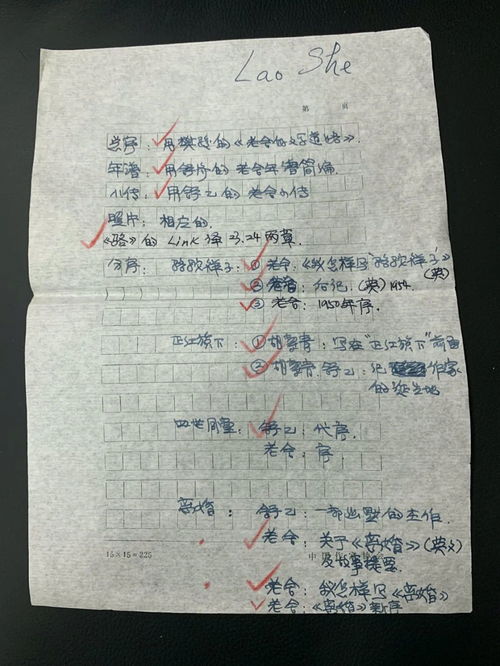 Lao She
第 页
总序：用樊骏的《老舍的文学道路》.
年谱：用舒济的老舍年谱简编
小传：用舒乙的老舍小传
照片：相应的.
《骆》的 Link 译 23.24 两章.
分序：骆驼祥子：① 老舍.《我怎样写"骆驼祥子"》(英)
② 老舍：后记.(英) 1954.
③ 老舍：1950年序.
正红旗下：① 胡絜青：写在"正红旗下"前面
② 胡絜青.舒乙：记 作家
的诞生地
四世同堂：舒乙：代序.
老舍：序.
离婚：舒乙：一部幽默的杰作.
老舍：关于《离婚》(英文)
及故事提要.
老舍：我怎样写《离婚》
老舍：《离婚》新序
15×15=225